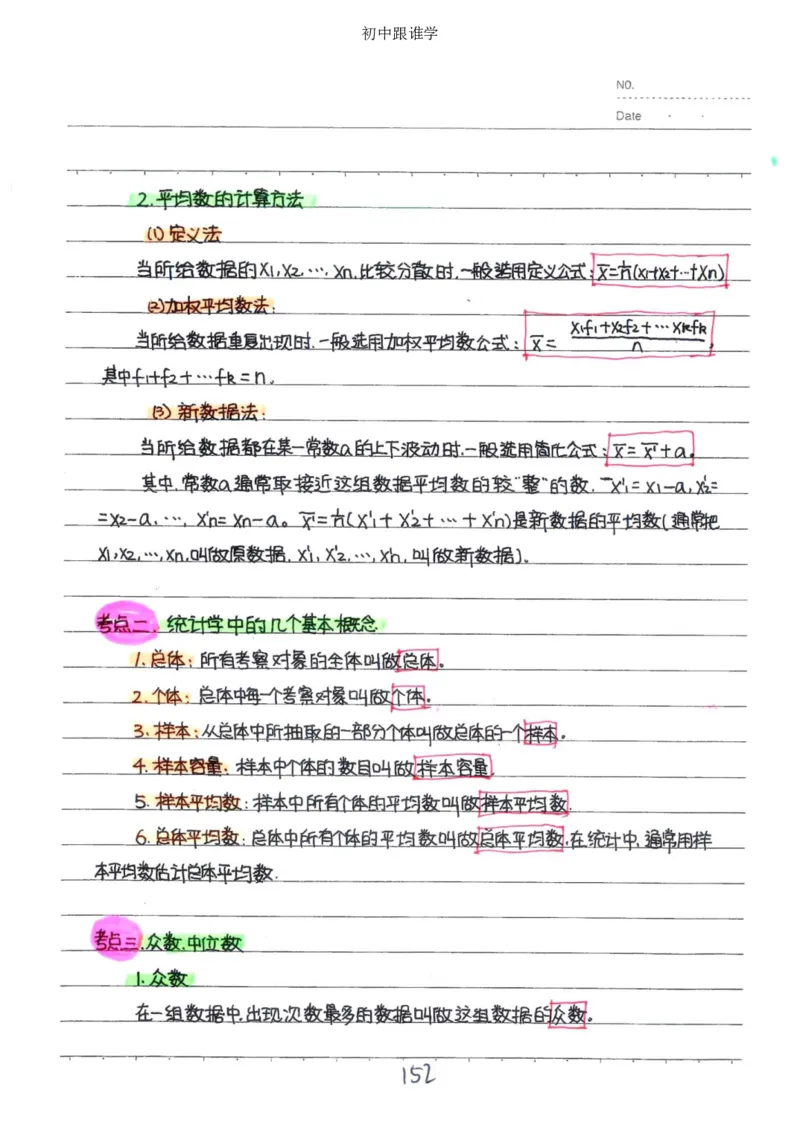 初中跟谁学
NO.
Date · ·
2.平均数的计算方法
(1)定义法
当所给数据的x1,x2,…,xn,比较分散时,一般选用定义公式: x̄=1/n(x1+x2+…+xn)
(2)加权平均数法:
当所给数据重复出现时,一般选用加权平均数公式: x̄=(x1f1+x2f2+…xkfk)/n,
其中f1+f2+…fk=n.
(3)新数据法:
当所给数据都在某一常数a的上下波动时,一般选用简化公式: x̄=x̄'+a。
其中,常数a通常取接近这组数据平均数的较"整"的数, x'1=x1-a,x'2=
=x2-a,…,x'n=xn-a。x̄'=1/n(x'1+x'2+…+x'n)是新数据的平均数(通常把
x1,x2,…,xn,叫做原数据,x'1,x'2,…,x'n,叫做新数据).
考点二.统计学中的几个基本概念
1.总体:所有考察对象的全体叫做总体。
2.个体:总体中每一个考察对象叫做个体.
3.样本:从总体中所抽取的一部分个体叫做总体的一个样本。
4.样本容量:样本中个体的数目叫做样本容量.
5.样本平均数:样本中所有个体的平均数叫做样本平均数.
6.总体平均数:总体中所有个体的平均数叫做总体平均数,在统计中,通常用样
本平均数估计总体平均数.
考点三.众数,中位数
1.众数
在一组数据中,出现次数最多的数据叫做这组数据的众数。
152